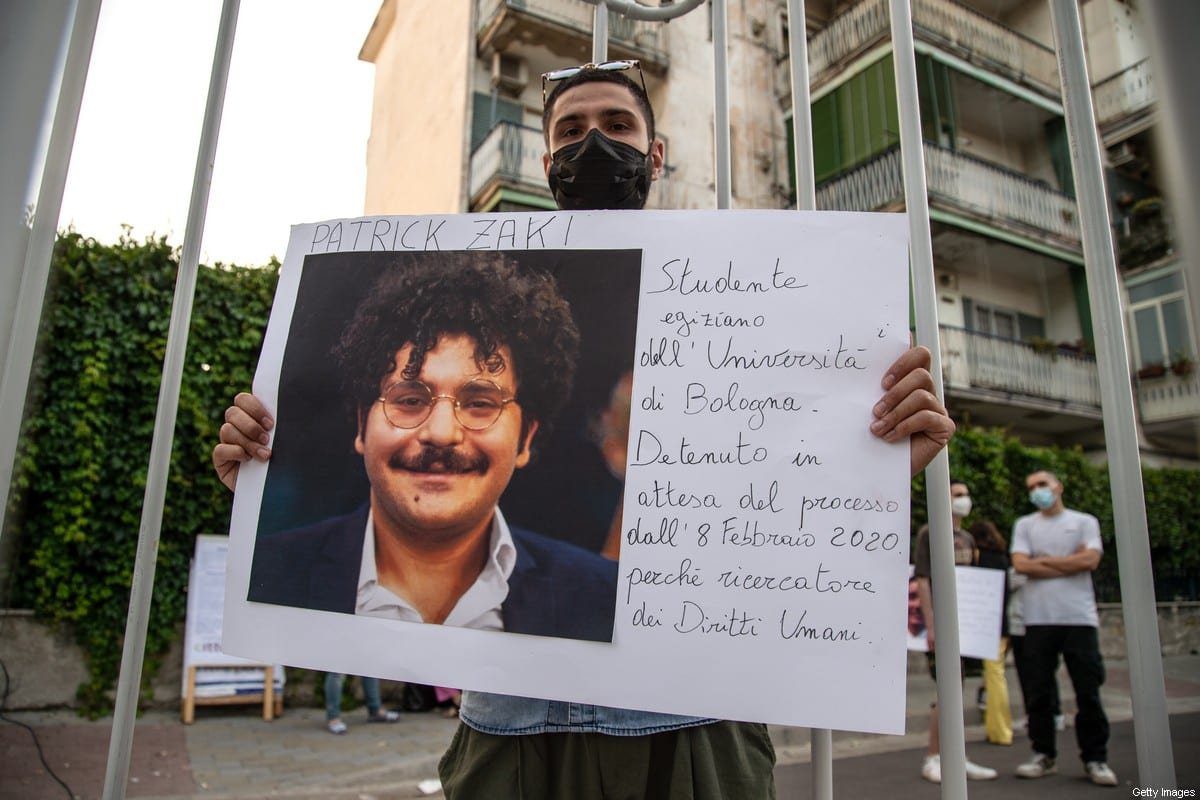 PATRICK ZAKI
Studente
egiziano
dell' Università
di Bologna.
Detenuto in
attesa del processo
dall' 8 Febbraio 2020.
perchè ricercatore
dei Diritti Umani.
Getty Images